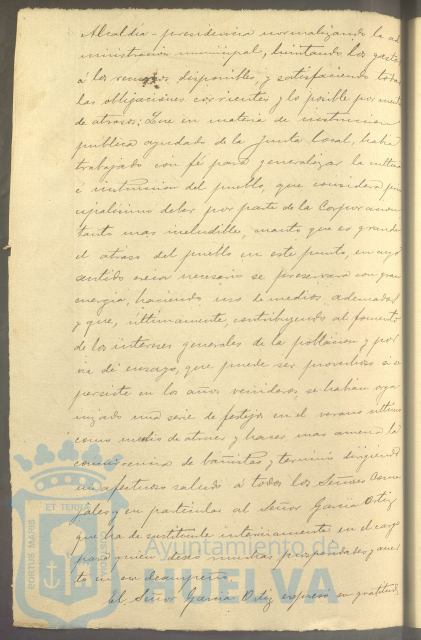 Alcaldía-presidencia normalizando la ad
ministración municipal, limitando los gastos
á los recursos disponibles, y satisfaciendo todas
las obligaciones corrientes y lo posible por
de atrasos; Que en materia de instrucción
pública ayudado de la Junta local, había
trabajado con fé para generalizar la cultura
é instrucción del pueblo, que considera prin
cipalísimo deber por parte de la Corporación
tanto mas ineludible, cuanto que es grande
el atraso del pueblo en este punto, en cuyo
sentido creía necesario se perseverará con gran
energía, haciendo uso de medios adecuados
y que, últimamente, contribuyendo al fomento
de los intereses generales de la población y por
vía de ensayo, que puede ser provechoso si se
persiste en los años venideros, se habían orga
nizado una serie de festejos en el verano último
como medio de atraer y hacer mas amena la
concurrencia de bañistas y terminó dirigiendo
un afectuoso saludo á todos los Señores Conce
jales y en particular al Señor García Ortiz
que ha de sustituirle interinamente en el cargo
para quien desea muchas prosperidades y acier
to en su desempeño.
El Señor García Ortiz expresó su gratitud
PORTUS MARIS
ET TERRAE
Ayuntamiento de
HUELVA